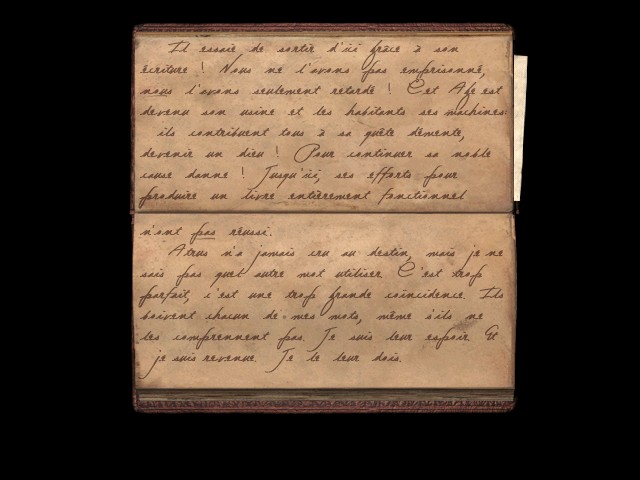 Il essaie de sortir d'ici grâce à son
écriture ! Nous ne l'avons pas emprisonné,
nous l'avons seulement retardé ! Cet Age est
devenu son usine et les habitants ses machines
ils contribuent tous à sa quête démente,
devenir un dieu ! Pour continuer sa noble
cause damne ! Jusqu'ici, ses efforts pour
produire un livre entièrement fonctionnel
n'ont pas réussi.
Atrus n'a jamais cru au destin, mais je ne
sais pas quel autre mot utiliser. C'est trop
parfait, c'est une trop grande coïncidence. Ils
boivent chacun de mes mots, même s'ils ne
les comprennent pas. Je suis leur espoir. Et
je suis revenue. Je le leur dois.